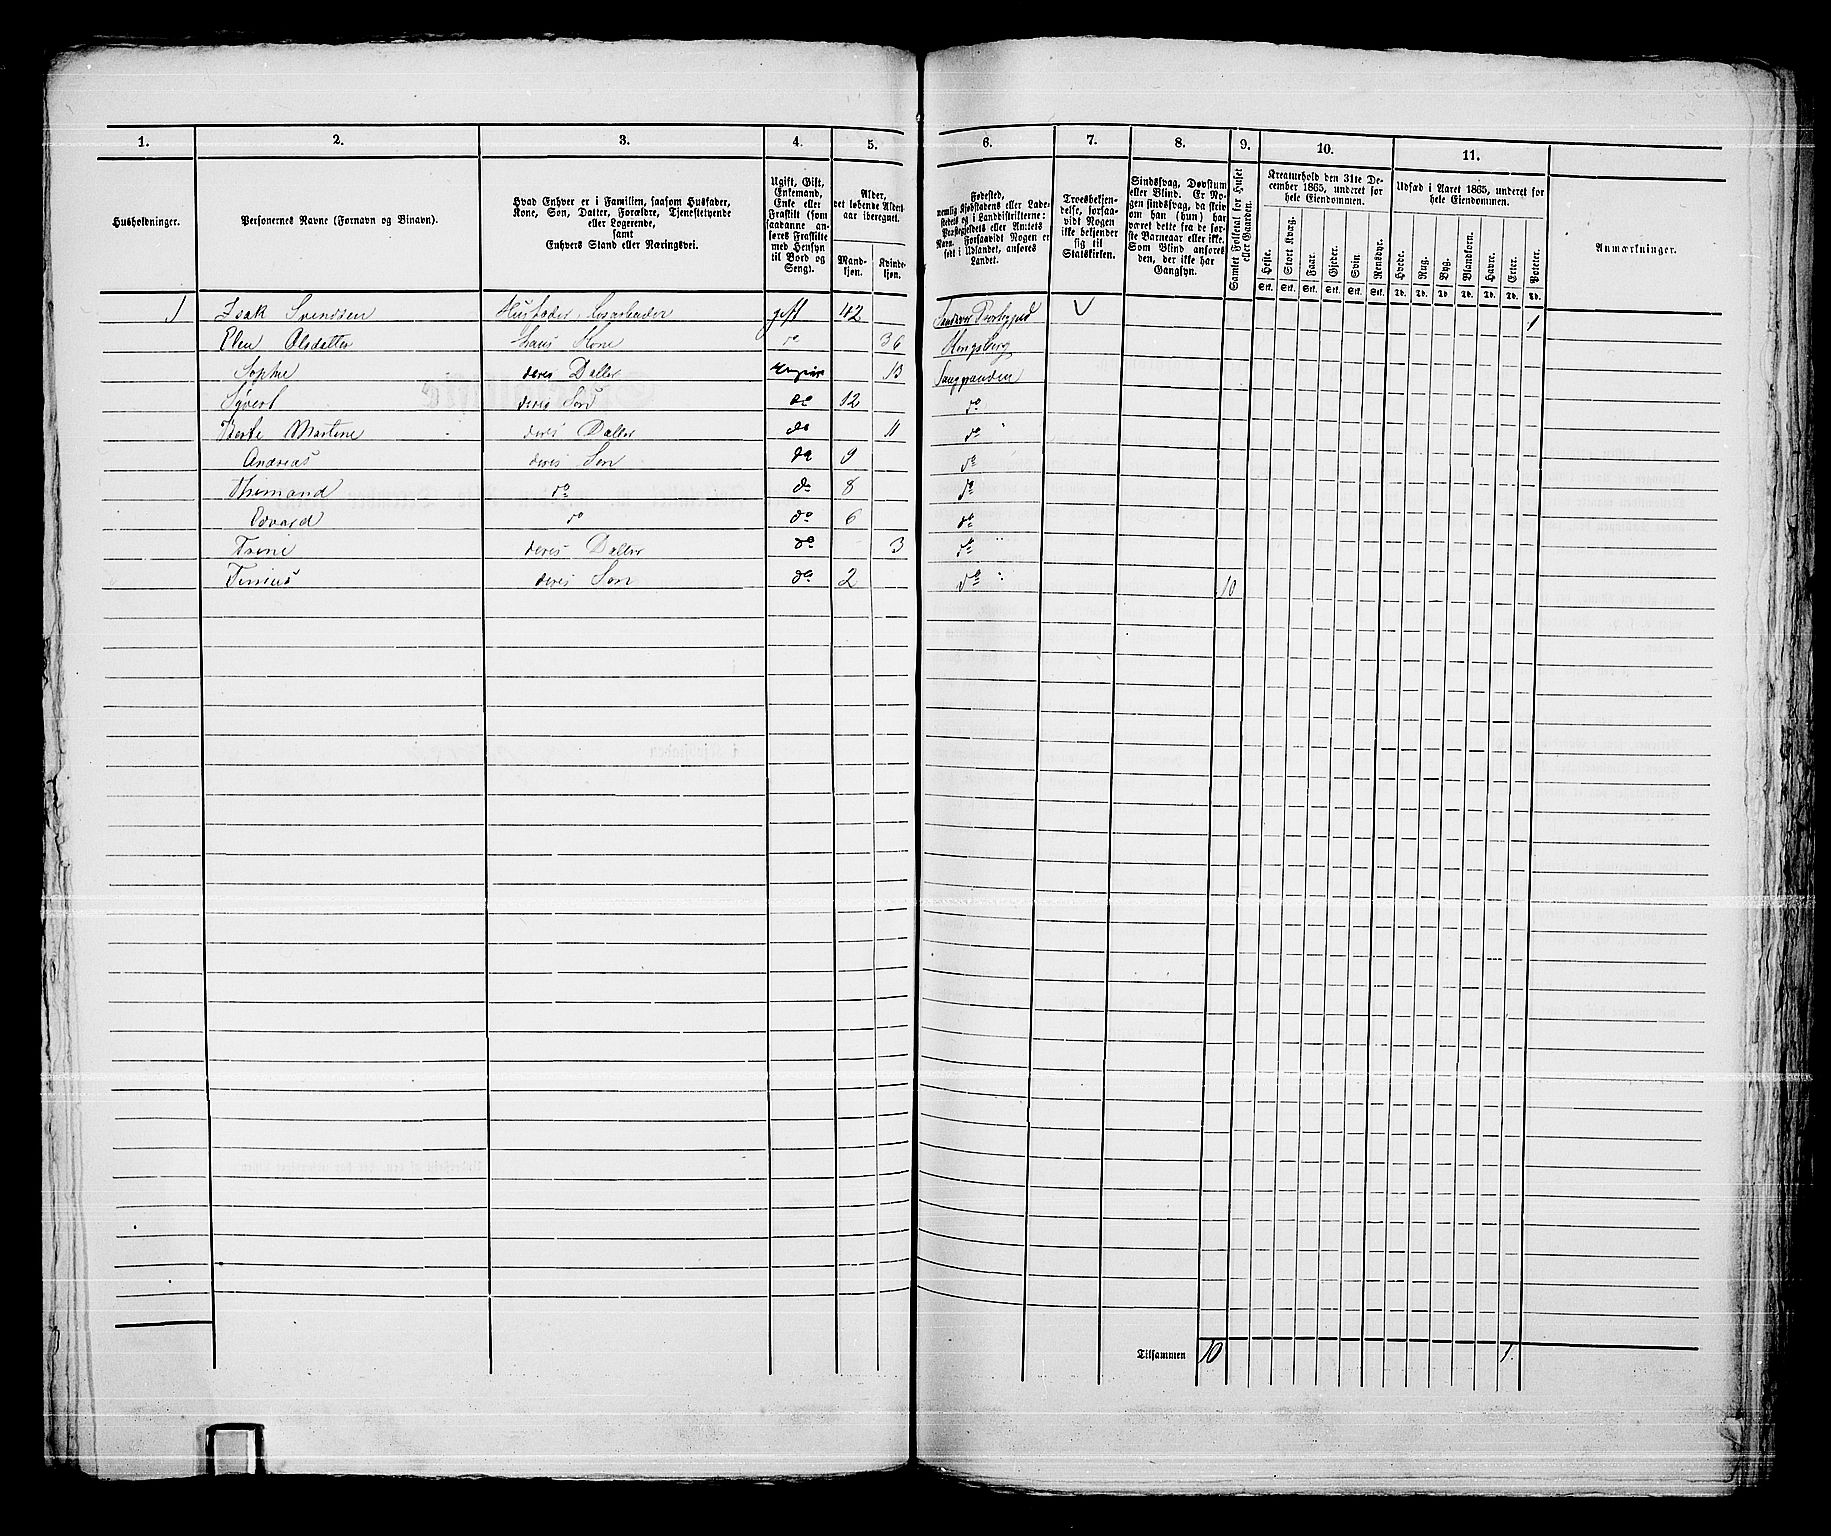 1. 2. 3. 4. 5. 6. 7. 8. 9. 10. 11.
Husholdninger.
Personernes Navne (Fornavn og Binavn).
Hvad Enhver er i Familien, saasom Husfader,
Kone, Søn, Datter, Forældre, Tjenestetyende
eller Logerende,
samt
Enhvers Stand eller Næringsvei.
Ugift, Gift,
Enkemand,
Enke eller
Fraskilt (som
saadanne an-
føres Fraskilte
med Hensyn
til Bord og
Seng).
Alder,
det løbende Alders-
aar iberegnet.
Mand-
kjøn.
Kvinde-
kjøn.
Fødested,
nemlig Kjøbstadens eller Lade-
stedets og i Landdistrikterne:
Præstegjeldets eller Amtets
Navn. Forsaavidt Nogen er
født i Udlandet, anføres
Landet.
Troesbekjen-
delse, forsaa-
vidt Nogen
ikke bekjender
sig til
Statskirken.
Sindssvag, Døvstum
eller Blind. Er No-
gen sindssvag, da skriv
om han (hun) har
været dette fra de før-
ste Barneaar eller ikke.
Som Blind anføres
den, der ikke har
Gangsyn.
Samlet Folketal for Huset
eller Gaarden.
Kreaturhold den 31te De-
cember 1865, underet for
hele Eiendommen.
Heste. Stort Kvæg. Faar. Gjeder. Svin. Rensdyr.
Stk. Stk. Stk. Stk. Stk. Stk.
Udsæd i Aaret 1865, underet for
hele Eiendommen.
Hvede. Rug. Byg. Blandkorn. Havre. Erter. Poteter.
Td. Td. Td. Td. Td. Td. Td.
Anmærkninger.
1 Isak Svendsen Husfader, gift 42 1
Elen Olsdatter hans Kone do 36 Kongsberg
Sophie deres Datter ugivt 13
Syvert deres Søn do 12 do
Berte Martine deres Datter do 11 do
Andreas deres Søn do 9 do
do do 8 do
Edvard do do 6 do
Trine deres Datter do 3 do
deres Søn do 2 do 10
Tilsammen 10 1